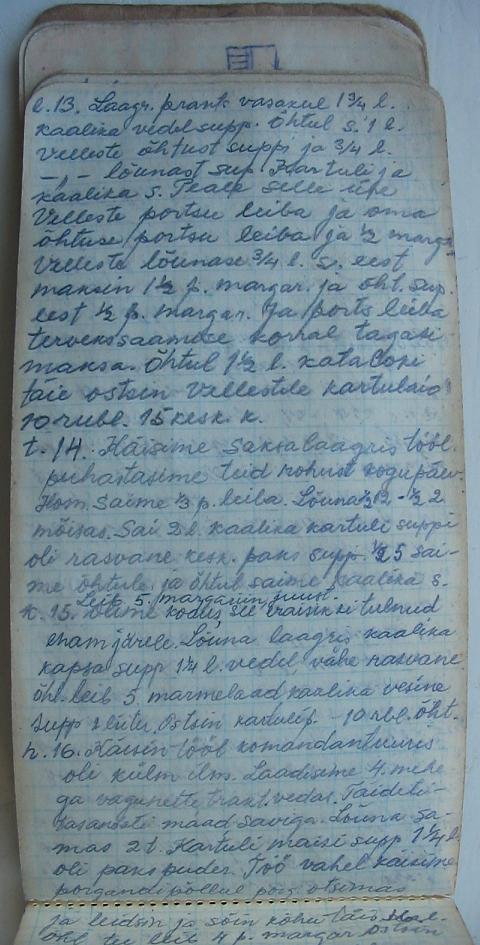 e. 13. Laagr. prant vasakul 1¾ l.
kaalika vedel supp. Õhtul s. 1 l.
Velleste õhtust suppi ja ¾ l.
–„– lõunast sup. Kartuli ja
kaalika s. Peale selle ühe
Velleste portsu leiba ja oma
õhtuse portsu leiba ja ½ marga
Velleste lõunase ¾ l. s. eest
maksin 1½ p. margar. ja õht. sup.
eest ½ p. margar. Ja ports leiba
tervekssaamise korral tagasi
maksa. Õhtul 1½ l. kataloki
täie ostsin Vellestele kartulaid
10 rubl. 15 kesk. k.
t. 14. Käisime Saksa laagris tööl.
puhastasime teid rohust kogu päev.
Hom. saime ⅓ p. leiba. Lõuna ½12 - ½2
mõisas. Sai 2 l. kaalika kartuli suppi
oli rasvane kesk. paks supp. ½5 sai-
me õhtule ja õhtul saime kaalika s.
Leib 5. margariin, juust.
k. 15. Olime kodus, see traisik ei tulnud
enam järele. Lõuna laagris kaalika
kapsa supp 1¼ l. vedel vähe rasvane
õhl. leib 5 marmelaad kaalika vesine
supp 1 liiter. Ostsin kartulip. - 10 rbl. õht.
n. 16. Käisin tööl komandantuuris
oli külm ilm. Laadisime 4. mehe
ga vagunette trakt. vedas. Täideti-
maad saviga. Lõuna sa-
mas 2 t. Kartuli maisi supp 1¼ l.
oli paks puder. Töö vahel käisime
porgandi põllul porg. otsimas
ja leidsin ja sõin kõhu täis
õhl. tee leib 4 p. margar ostsin